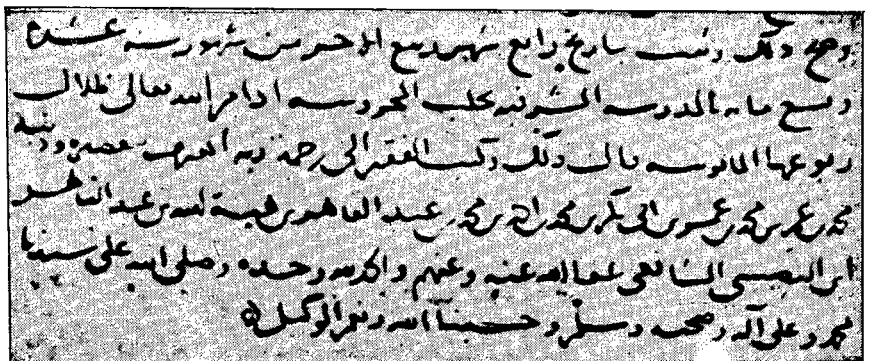 وصح ذلك وثبت بتاريخ رابع شهر ربيع الاخر من شهور سنة عشرة
وتسع ماية بالمدرسة الشرفية بحلب المحروسة ادام الله تعالى ظلال
ربوعها المانوسة قال ذلك وكتب الفقير الى رحمة ربه المعترف بعجزه وذنبه
محمد بن عمر بن محمد بن ابي بكر بن محمد بن احمد بن محمد بن عبد القاهر بن هبة الله بن عبد القاهر
ابن النصيبي الشافعي عفا الله عنه وعنهم والحمد لله وحده وصلى الله على سيدنا
محمد وعلى آله وصحبه وسلم وحسبنا الله ونعم الوكيل